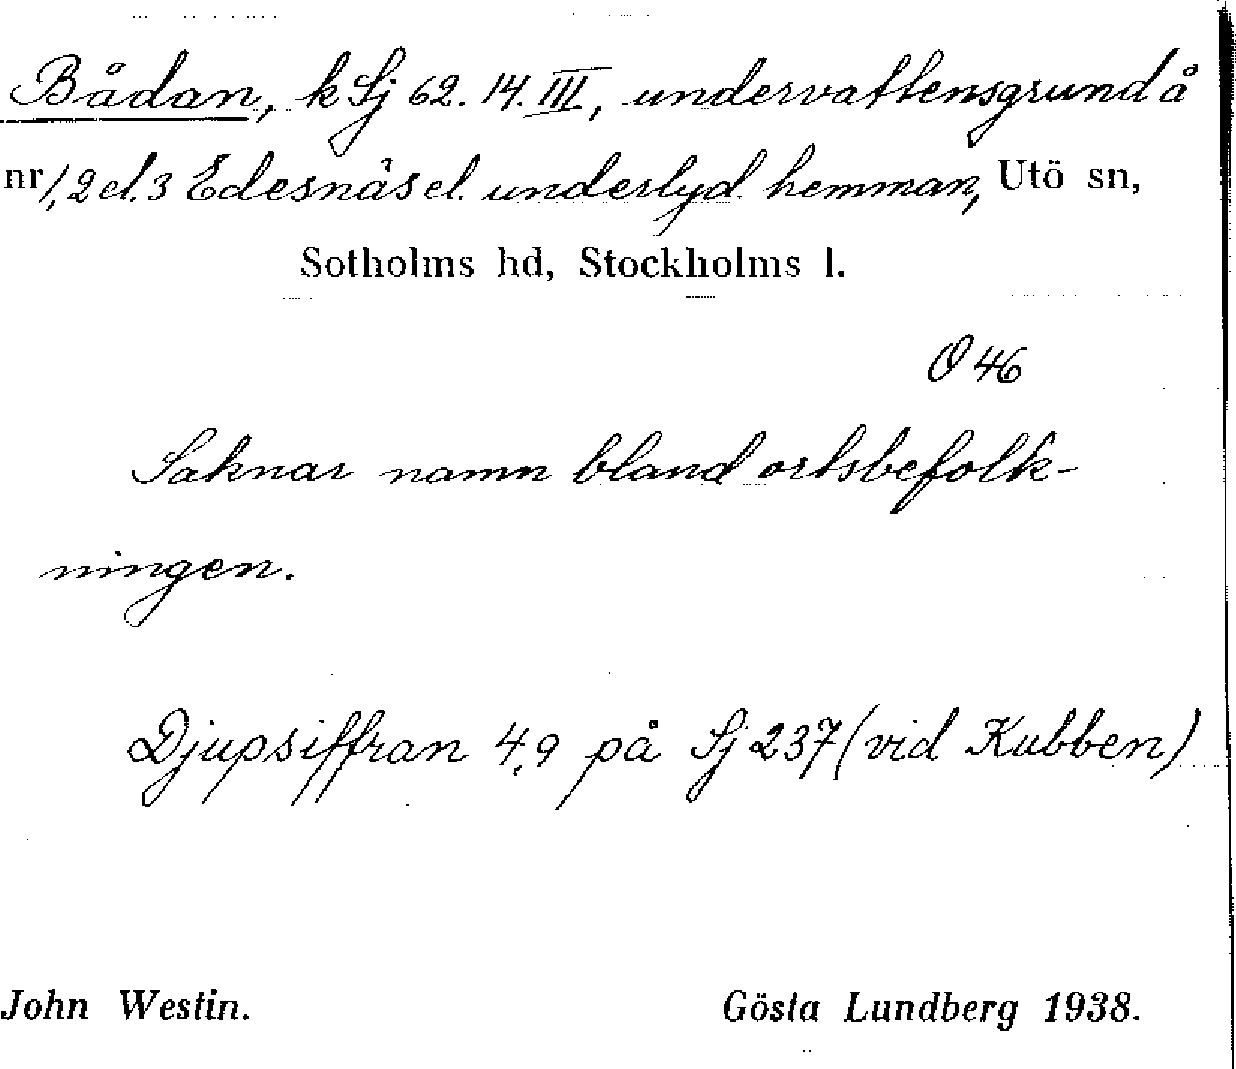 Bådan, k Sj 62. 14. III, undervattensgrund å
nr 1, 2 el. 3 Edesnäs el. underlyd. hemman, Utö sn,
Sotholms hd, Stockholms l.
O 46
Saknar namn bland ortsbefolk-
ningen.
Djupsiffran 4,9 på Sj 237 (vid Kubben)
John Westin. Gösta Lundberg 1938.